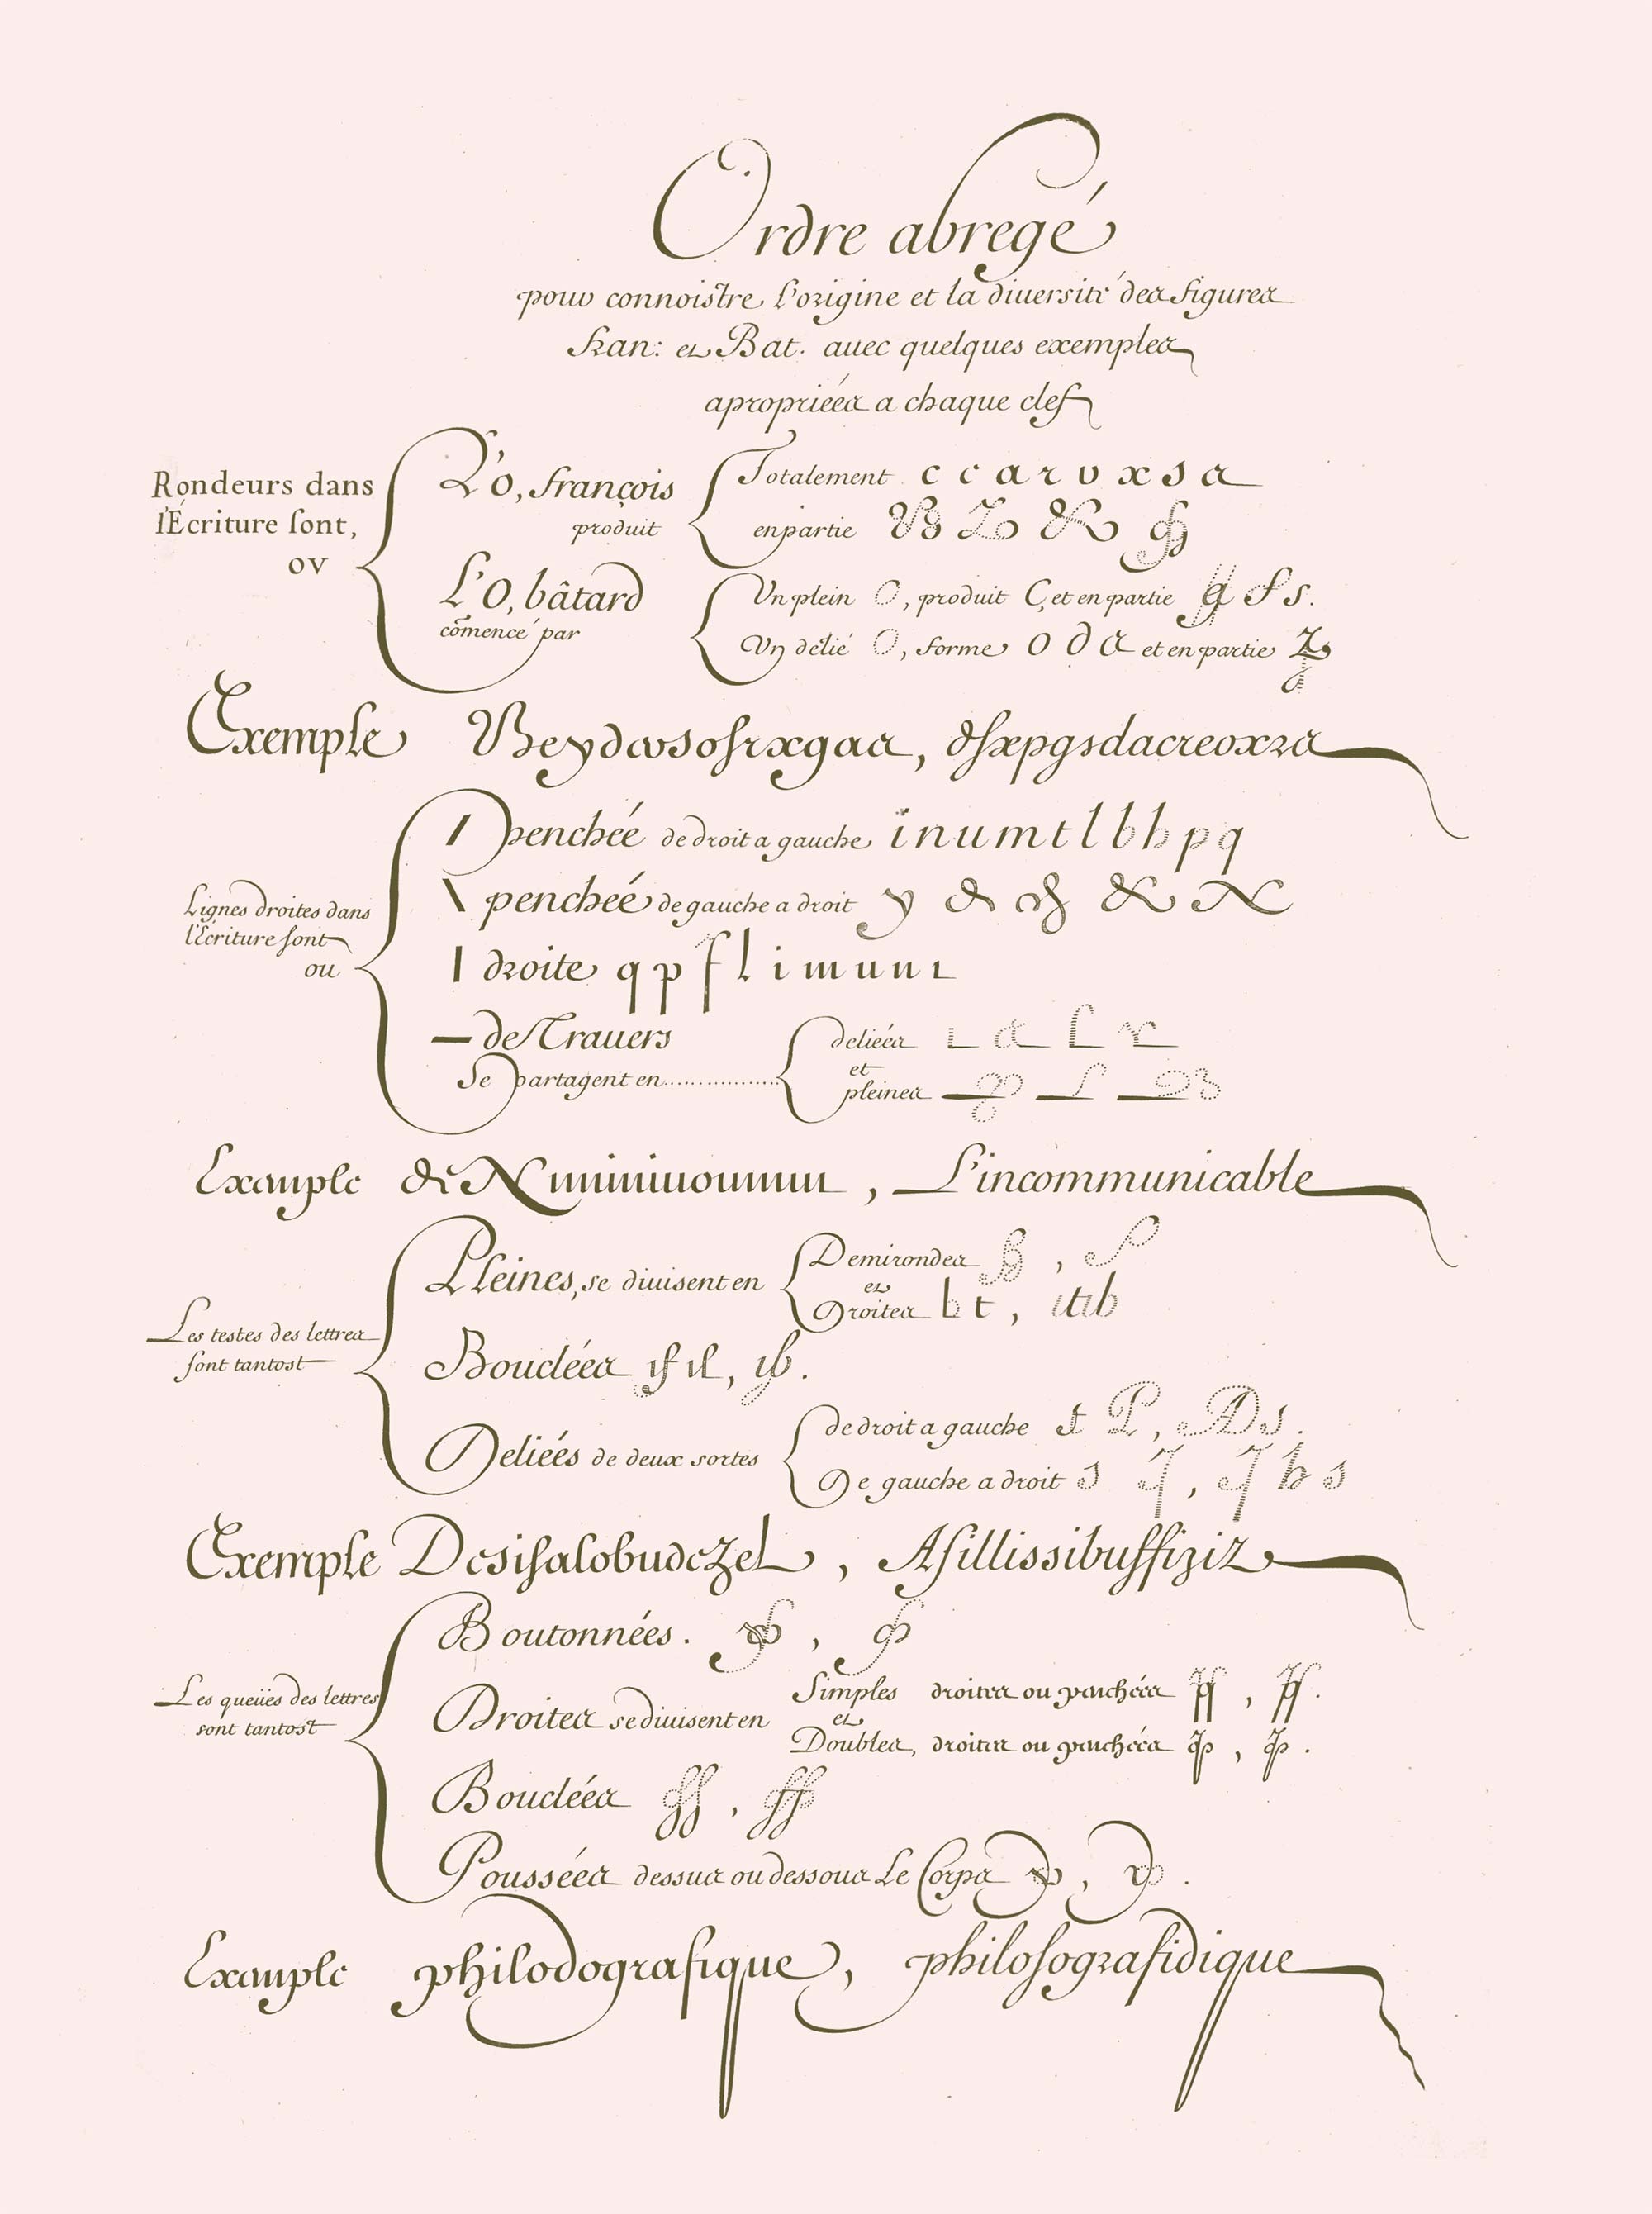 Ordre abregé
pour connoistre l'origine et la diuersité des figures
Fran: et Bat. auec quelques exemples
apropriées a chaque clef
Rondeurs dans
l'Ecriture sont,
ou
L'o, françois
produit
Totalement c c a r v x s a
en partie
L'O, bâtard
comencé par
Un plein O, produit C, et en partie q f s.
Un délié O, forme o d a et en partie z
Exemple
Lignes droites dans
l'Ecriture sont
ou
penchée de droit a gauche i n u m t l b h p q
penchée de gauche a droit y
droite q p f l i m u n ı
de Trauers
Se partagent en
deliées
et
pleines
Exemple L'incommunicable
Les testes des lettres
sont tantost
Pleines, se diuisent en
Demirondes
et
Droites b t,
Bouclées
Deliées de deux sortes
de droit a gauche
De gauche a droit
Exemple Desisalobudezel, Asillissibuffiziz
Les queües des lettres
sont tantost
Boutonnées.
Droites se diuisent en
Simples droites ou penchées
et
Doubles, droites ou penchées
Bouclées
Poussées dessus ou dessous Le Corps
Exemple philodografique, philosografidique